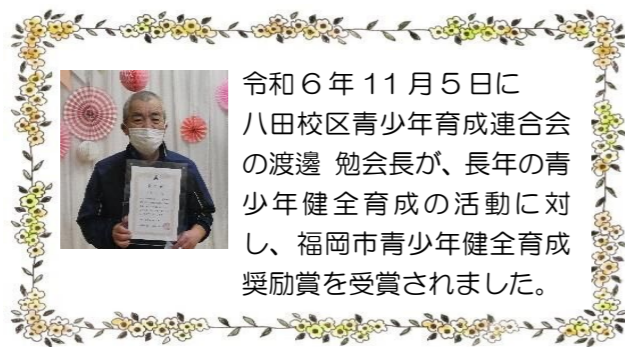 令和６年 11 月５日に
八田校区青少年育成連合会
の渡邊 勉会長が、長年の青
少年健全育成の活動に対
し、福岡市青少年健全育成
奨励賞を受賞されました。